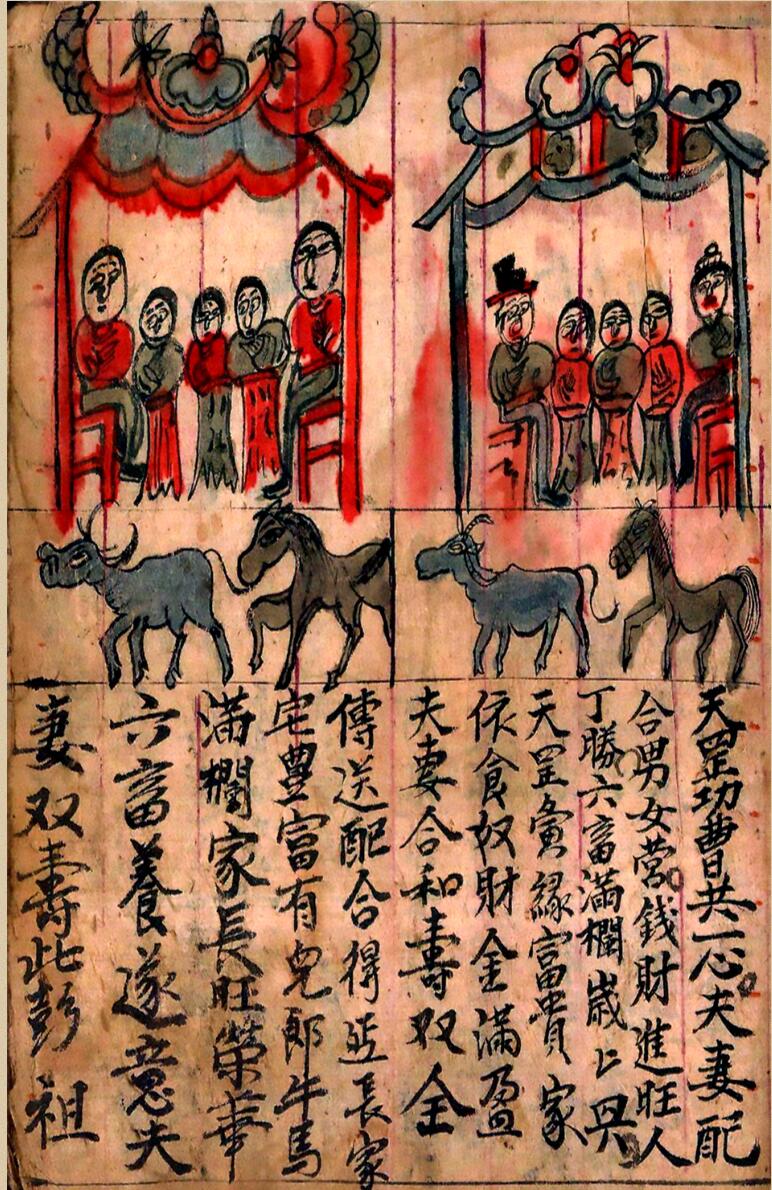 天罡功曹共一心夫妻配
合男女营錢財進旺人
丁勝六畜滿欄歲上興
天罡寅緣富貴家
依食奴財金滿盈
夫妻合和壽双全
傳送配合得延長家
宅豐富有兒郎牛馬
滿欄家長旺榮華
六畜養遂意夫
妻双壽此彭祖